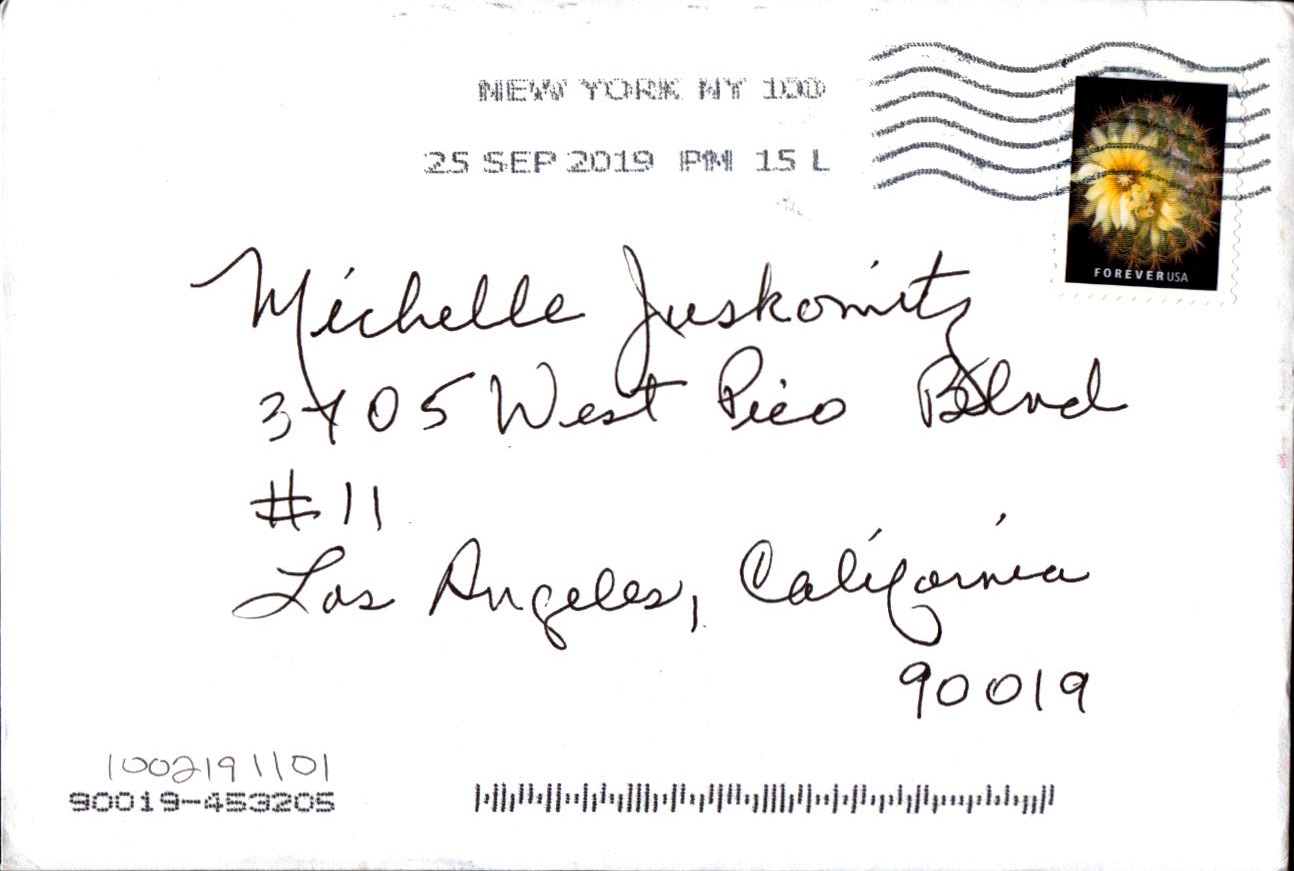 NEW YORK NY 100
25 SEP 2019 PM 15 L
FOREVER USA
Michelle Juskowitz
3705 West Pico Blvd
#11
Los Angeles, California
90019
1002191101
90019-453205